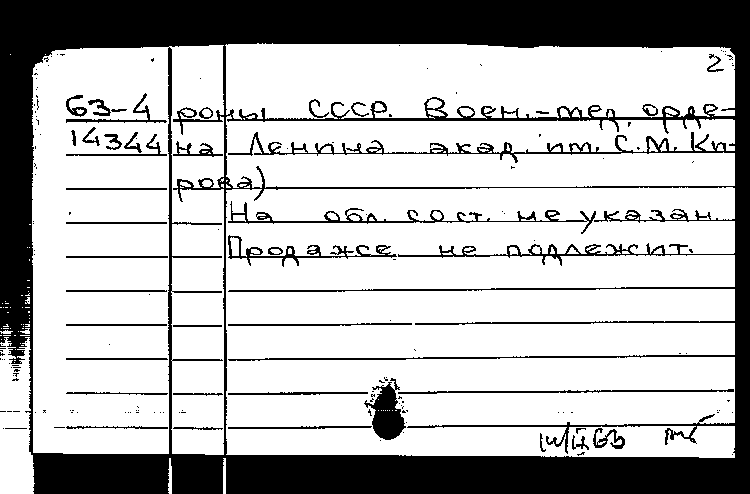 2
63-4 роны СССР. Воен.-мед. орде-
14344 на Ленина акад. им. С.М. Ки-
рова).
На обл. сост. не указан.
Продаже не подлежит.